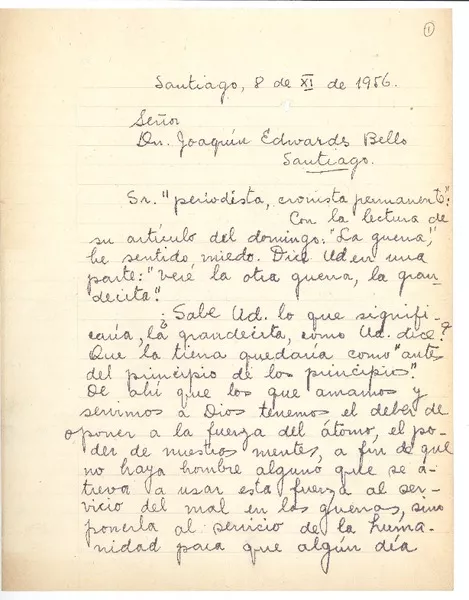 1
Santiago, 8 de XI de 1956.
Señor
Dn. Joaquín Edwards Bello
Santiago.
Sr. "periodista, cronista permanente":
Con la lectura de
su artículo del domingo: "La guerra",
he sentido miedo. Dice Ud. en una
parte: "Veré la otra guerra, la gran-
decita".
¿Sabe Ud. lo que signifi-
caría, la grandecita, como Ud. dice?
Que la tierra quedaría como "antes
del principio de los principios".
De ahí que los que amamos y
servimos a Dios tenemos el deber de
oponer a la fuerza del átomo, el po-
der de nuestras mentes, a fin de que
no haya hombre alguno que se a-
treva a usar esta fuerza al ser-
vicio del mal en las guerras, sino
ponerla al servicio de la huma-
nidad para que algún día